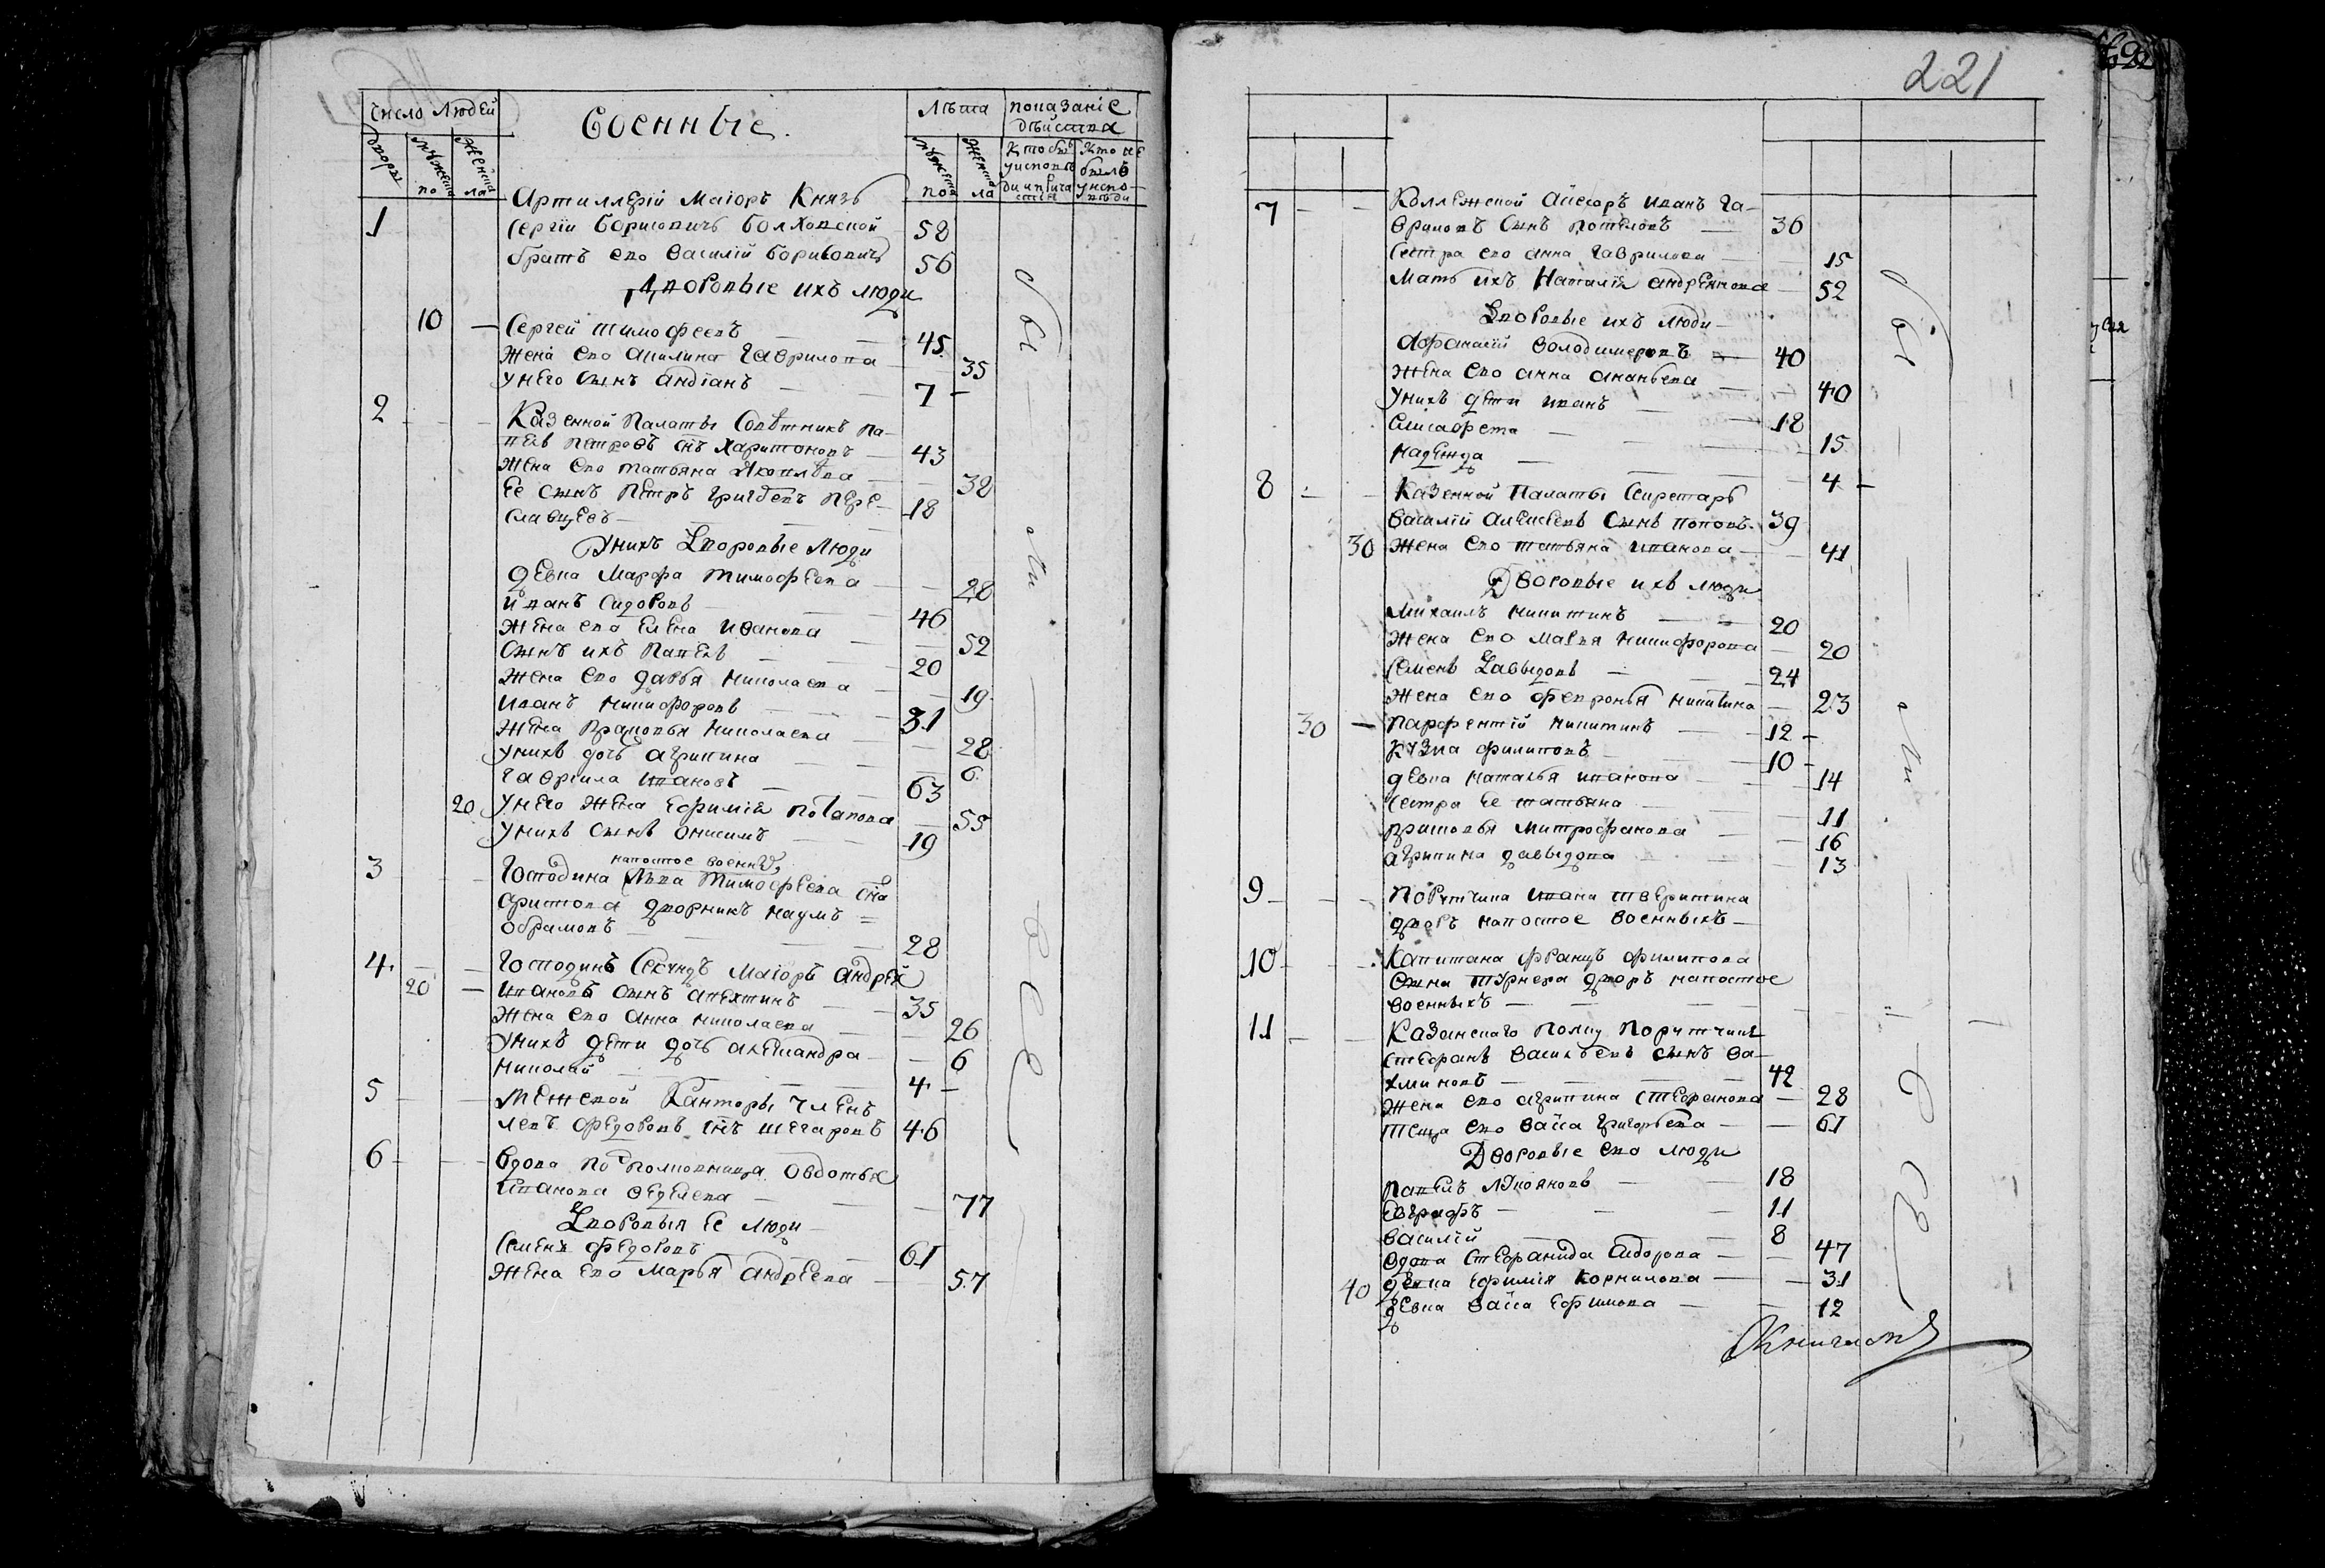 Число Людей
Военные.
Лѣта
показаніе
дѣйства
Дворы
мужеска
по
женска
ла
мужеска
по
женска
ла
Кто былъ
уиспове
ди иприча
стія
Кто не
былъ
уиспо-
вѣди
Артиллеріи Маіоръ Князь
1 Сергіи Борисовичь Болховской 58
братъ ево Василіи Борисовичь 56
Дворовые ихъ люди
10 Сергей тимофеевъ 45
Жена ево акилина Гаврилова 35
унего сынъ андіанъ 7
2 Казенной Палаты Советникъ Па-
велъ петровъ снъ Харитоновъ 43
Жена ево татьяна Яковлева 32
Ее сынъ Петръ григоревъ пере-
славцевъ 18
Унихъ Дворовые Люди
девка Марфа тимофеева 28
иванъ сидоровъ 46
жена ево елена иванова 52
сынъ ихъ Павелъ 20
жена ево дарья николаева 19
иванъ никифоровъ 31
жена Прасковья николаева 28
унихъ дочь агрипина 6
гаврила ивановъ 63
20 унего жена ефимія потапова 55
унихъ сынъ онисимъ 19
напостое военныхъ
3 Господина Льва тимофеева сна
фитова дворникъ наумъ
обрамовъ 28
4 Господинъ Секундъ маіоръ андрей
20 ивановъ сынъ апехтинъ 35
Жена ево анна николаева 26
унихъ дети дочь александра 6
николай 4
5 межевой Канторы членъ
левъ федоровъ снъ шегаровъ 46
6 Вдова подполковница овдотья
иванова 77
Дворовыя ее люди
Семенъ федоровъ 61
жена ево марья андреева 57
были
все
221
7 Коллежской асесоръ иванъ га-
вриловъ сынъ потемовъ 36
Сестра ево анна гаврилова 15
мать ихъ наталія андреянова 52
Дворовые ихъ люди
Афанасій володимеровъ 40
жена ево анна ананьева 40
унихъ дети иванъ 18
Елисавфета 15
надежда 4
8 Казенной Палаты Секретарь
Василій алексеевъ сынъ поповъ 39
30 жена ево татьяна иванова 41
Дворовые ихъ люди
михаилъ никитинъ 20
жена ево марья никифорова 20
Семенъ Давыдовъ 24
жена ево февронья никитина 23
30 парфентій никитинъ 12
Кузма филиповъ 10
девка наталья иванова 14
сестра ее татьяна 11
прасковья митрофанова 16
агрипина давыдова 13
9 Порутчика ивана тверитина
дворъ напостое военныхъ
10 Капитана францъ филипова
сына турнера дворъ напостое
военныхъ
11 Казанскаго полку порутчикъ
стефанъ васильевъ сынъ ва-
хминовъ 42
жена ево агрипина стефанова 28
теща ево васса григорьева 61
Дворовые ево люди
павелъ лукояновъ 18
евграфъ 11
василій 8
вдова стефанида сидорова 47
девка ефимія корнилова 31
40 девка васса ефимова 12
были
все